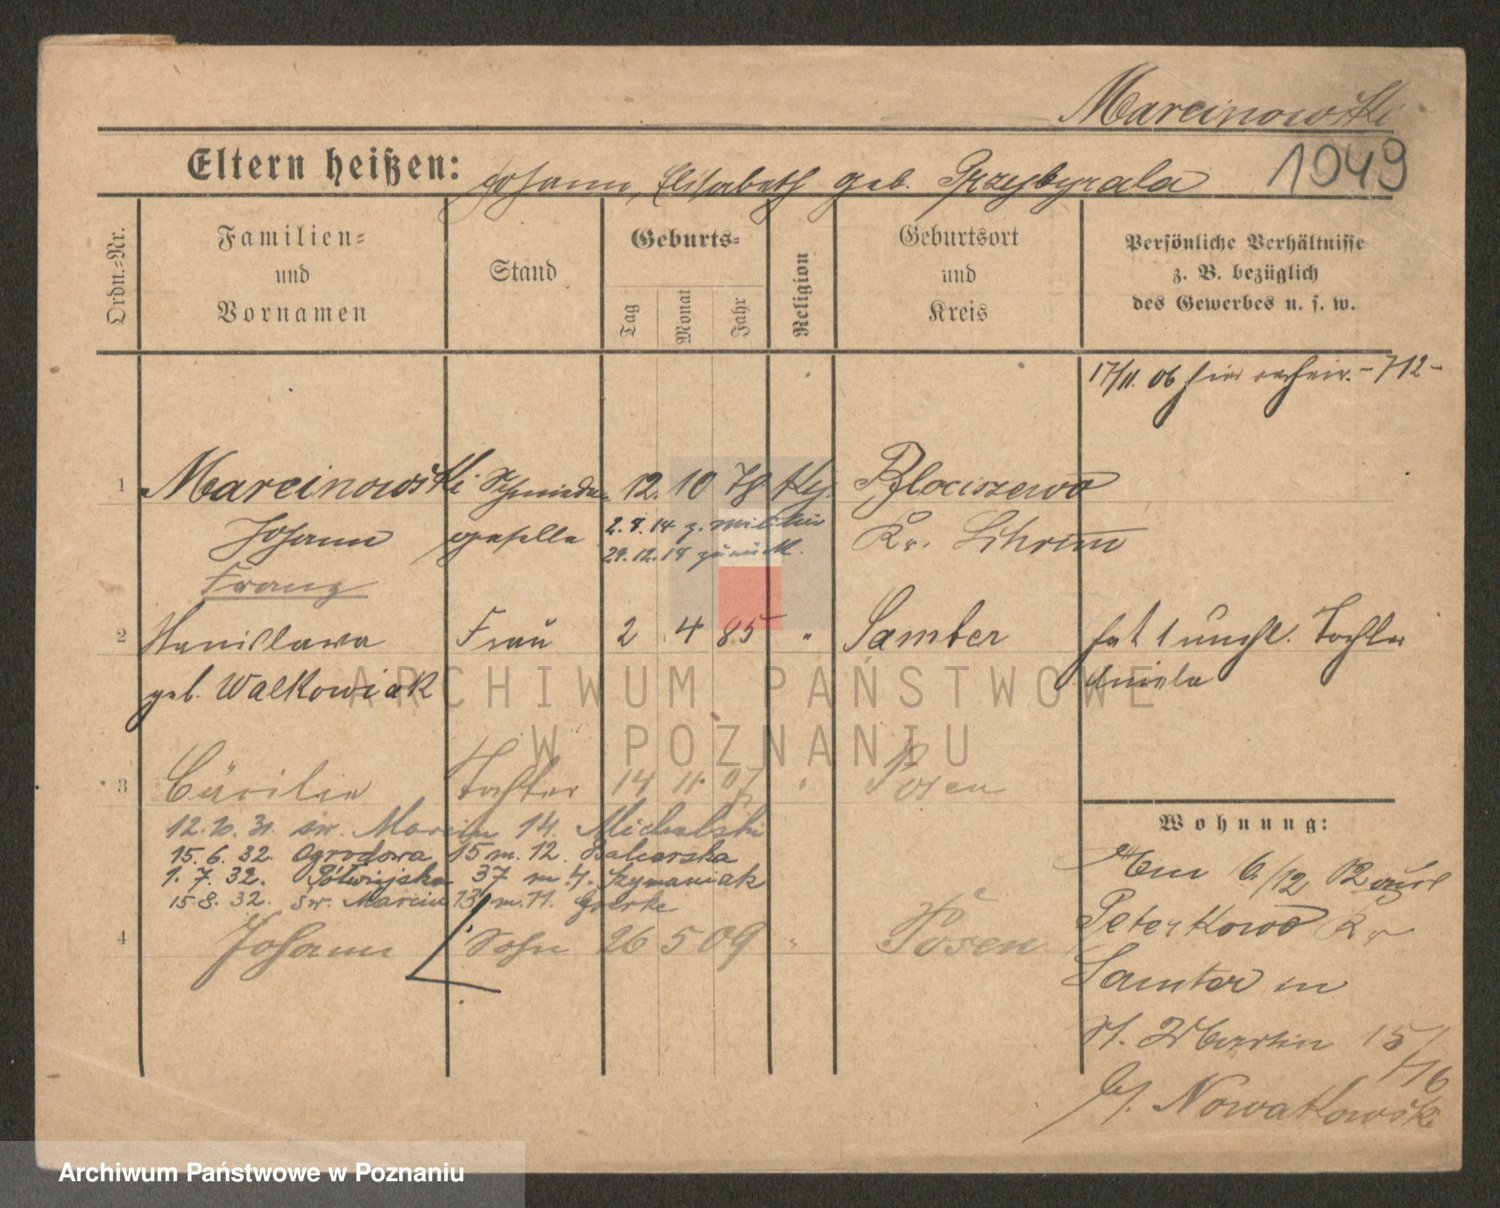 Marcinowski
1049
Eltern heißen: Johann, Elisabeth geb. Przybyrala
Ordn.=Nr.
Familien=
und
Vornamen
Stand
Geburts=
Tag
Monat
Jahr
Religion
Geburtsort
und
Kreis
Persönliche Verhältnisse
z. B. bezüglich
des Gewerbes u. s. w.
17/11. 06 hier verheir. - 712 -
1 Marcinowski Schmiede- 12. 10 78
Johann geselle 2.8.14 z. Militär Kr. Schrim
29.12.18 zurück M.
Franz
2 Stanislawa Frau 2 4 85 " Samter hat 1 unehl. Tochter
geb. Walkowiak
3 Cäcilie Tochter 14 11 07 " Posen
12.10.31. św. Marcin 14. Michalski
15.6.32. Ogrodowa 15 m. 12. Balcerska
1.7.32. Półwiejska 37 m. 4. Szymaniak
15.8.32. św. Marcin 13 m. 11. Goerke
4 Johann Sohn 26 5 09 " Posen
Wohnung:
6/12
Peterkowo Kr
Samter in
St. Martin 15/
b/. Nowakowski
ARCHIWUM PAŃSTWOWE
W POZNANIU
Archiwum Państwowe w Poznaniu